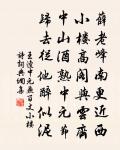 薛老峰南更近西
小樓高閣與雲齊
中山酒熟中元節
歸去從他醉似泥
王逵中元燕百丈小樓
詩詞